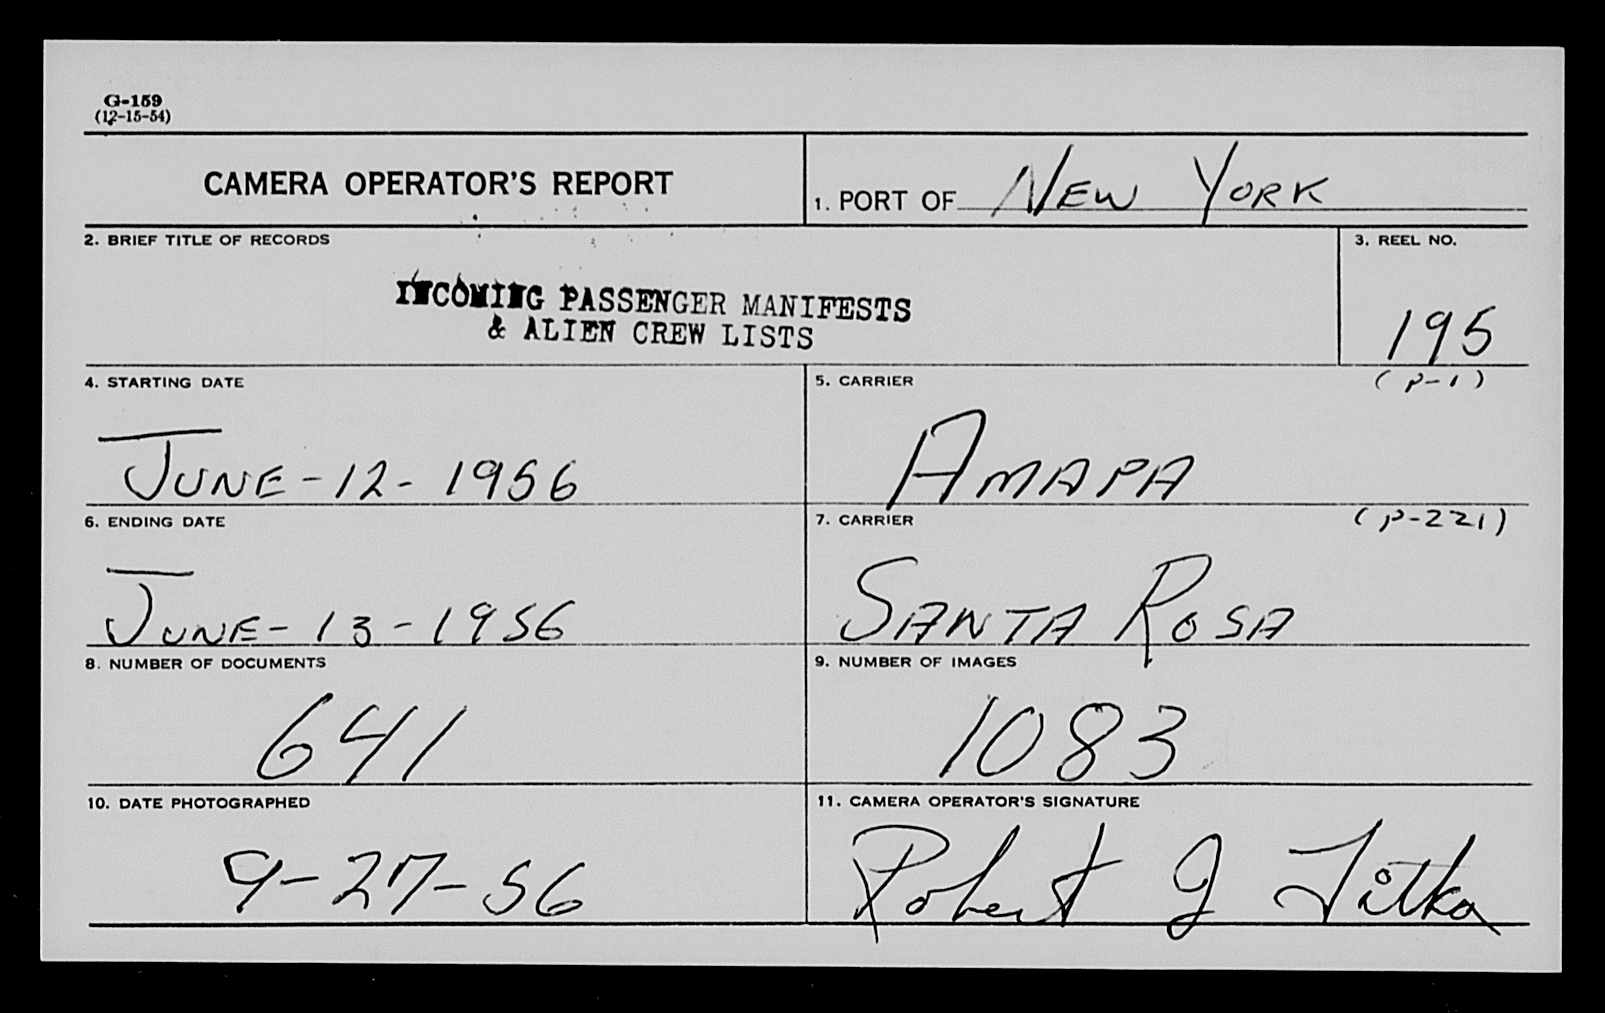 G-159
(12-15-54)
CAMERA OPERATOR'S REPORT
1. PORT OF NEW YORK
2. BRIEF TITLE OF RECORDS
INCOMING PASSENGER MANIFESTS
& ALIEN CREW LISTS
3. REEL NO.
195
4. STARTING DATE
JUNE-12-1956
5. CARRIER
(P-1)
AMAPA
6. ENDING DATE
JUNE-13-1956
7. CARRIER
(P-221)
SANTA ROSA
8. NUMBER OF DOCUMENTS
641
9. NUMBER OF IMAGES
1083
10. DATE PHOTOGRAPHED
9-27-56
11. CAMERA OPERATOR'S SIGNATURE
Robert J